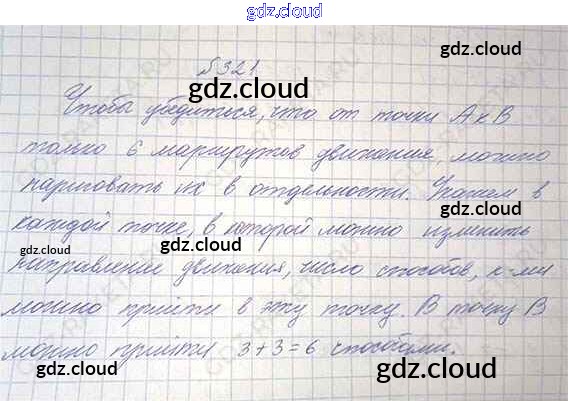 gdz.cloud
gdz.cloud
№321
gdz.cloud
Чтобы убедиться, что от точки А к В
gdz.cloud
только 6 маршрутов движения, можно
нарисовать их в отдельности. Укажем в
gdz.cloud
каждой точке, в которой можно изменить
gdz.cloud
gdz.cloud
направление движения, число способов, к-ми
можно прийти в эту точку. В точку В
можно прийти 3+3=6 способами.
gdz.cloud
gdz.cloud